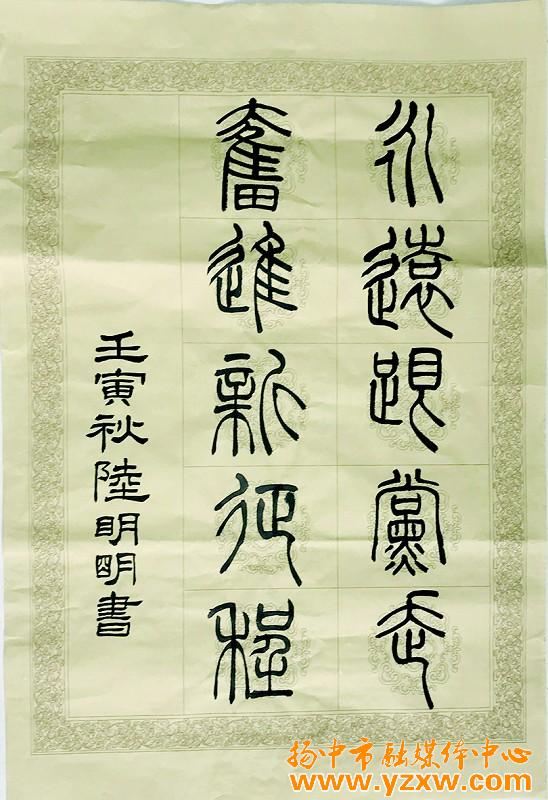 永遠跟黨走
奮進新征程
壬寅秋陸明明書
扬中市融媒体中心
www.yzxw.com